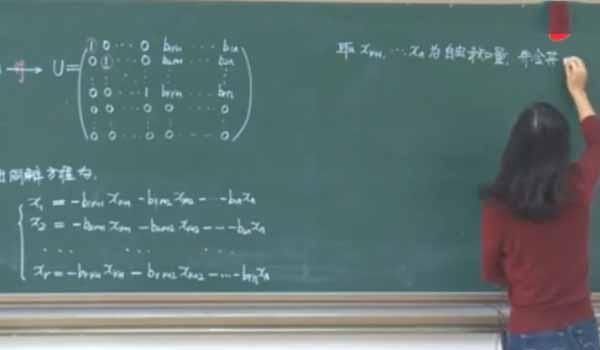 U = ( 1 0 ⋯ 0 b₁,r+1 ⋯ b₁n
0 1 ⋯ 0 b₂,r+1 ⋯ b₂n
⋮ ⋮ ⋮ ⋮ ⋮
0 0 ⋯ 1 br,r+1 ⋯ brn
0 0 ⋯ 0 0 ⋯ 0
⋮ ⋮ ⋮ ⋮ ⋮
0 0 ⋯ 0 0 ⋯ 0 )
取 xr+1, ⋯ xn 为自由未知量, 并令其
同解方程为,
x₁ = -b₁,r+1 xr+1 - b₁,r+2 xr+2 - ⋯ - b₁n xn
x₂ = -b₂,r+1 xr+1 - b₂,r+2 xr+2 - ⋯ - b₂n xn
⋯ ⋯ ⋯
xr = -br,r+1 xr+1 - br,r+2 xr+2 - ⋯ - brn xn